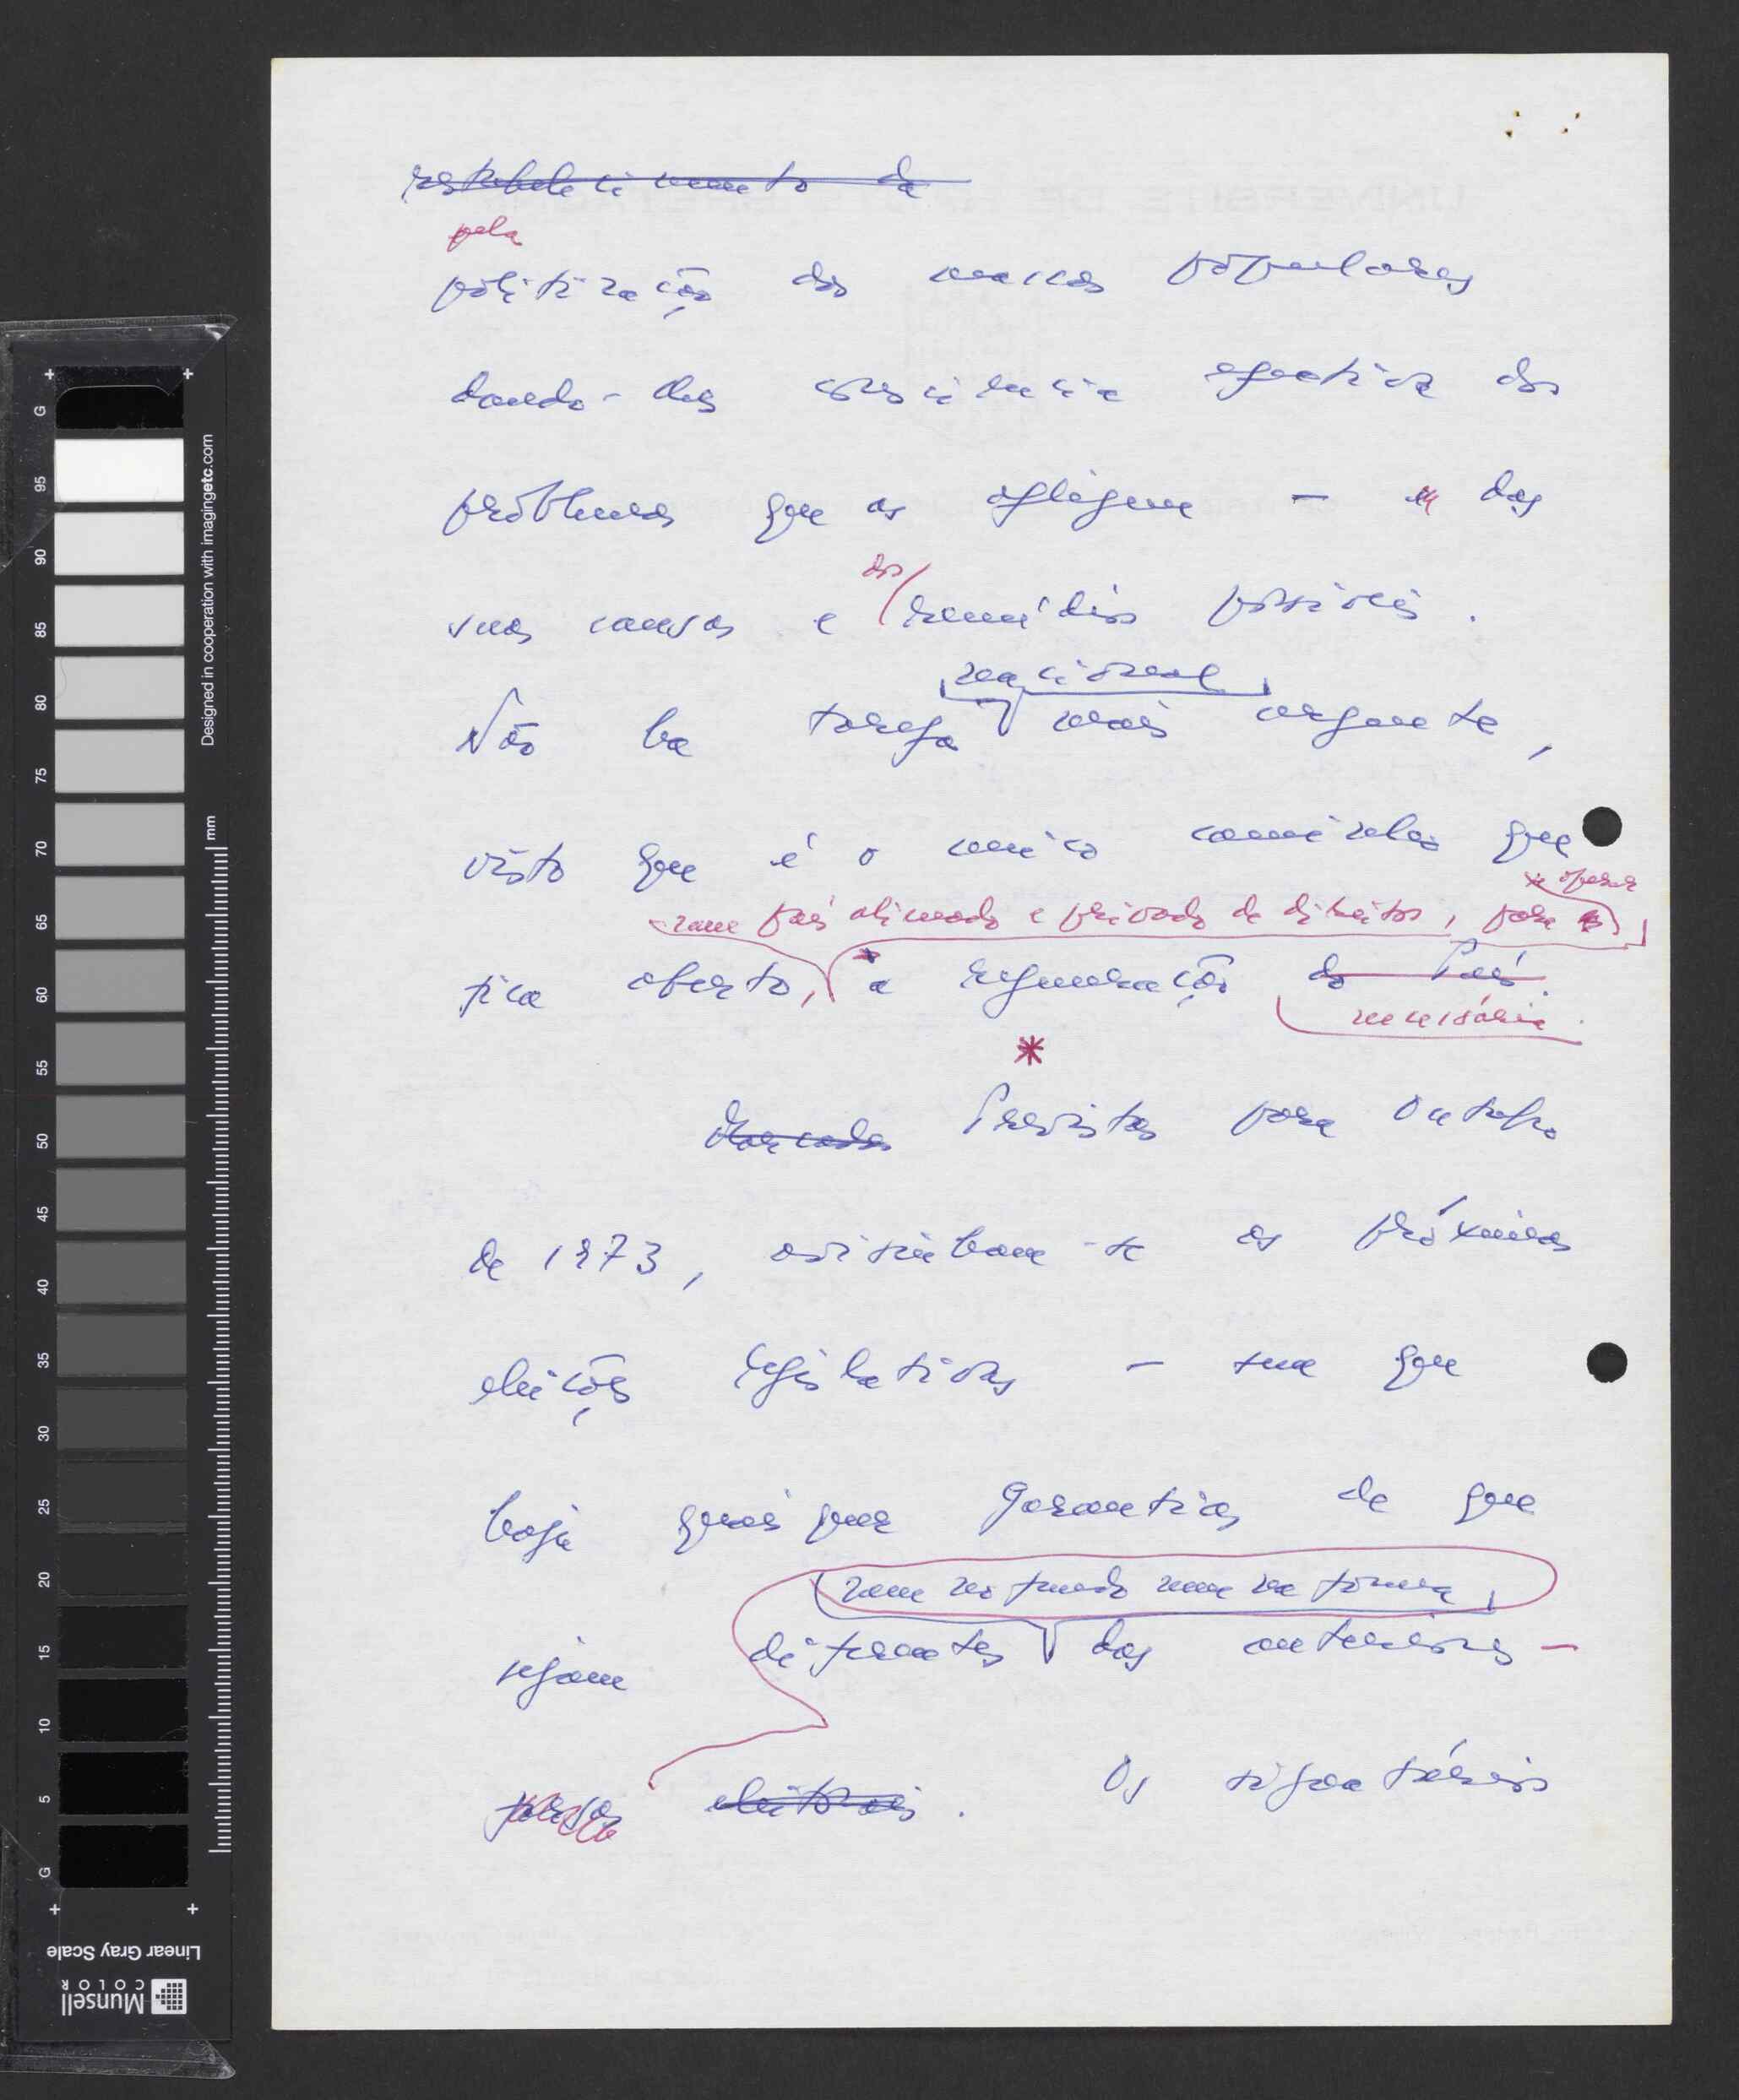 restabelecimento da
pela
politização das massas populares
dando-lhes consciência efectiva dos
problemas que as afligem — e das
suas causas e dos remédios possíveis.
nacional
Não ha tarefa mais urgente,
visto que é o unico caminho que
se operar
num país alienado e privado de direitos, para
fica aberto, a regeneração do País.
necessária.
*
Marcadas Previstas para Outubro
de 1973, avisinham-se as próximas
eleições legislativas — sem que
haja quaisquer garantias de que
nem no fundo nem na forma
sejam diferentes das anteriores —
farsas eleitorais. Os signatários
Designed in cooperation with imagingetc.com
mm
G 95 90 85 80 75 70 65 60 55 50 45 40 35 30 25 20 15 10 5 G
Linear Gray Scale
Munsell
COLOR